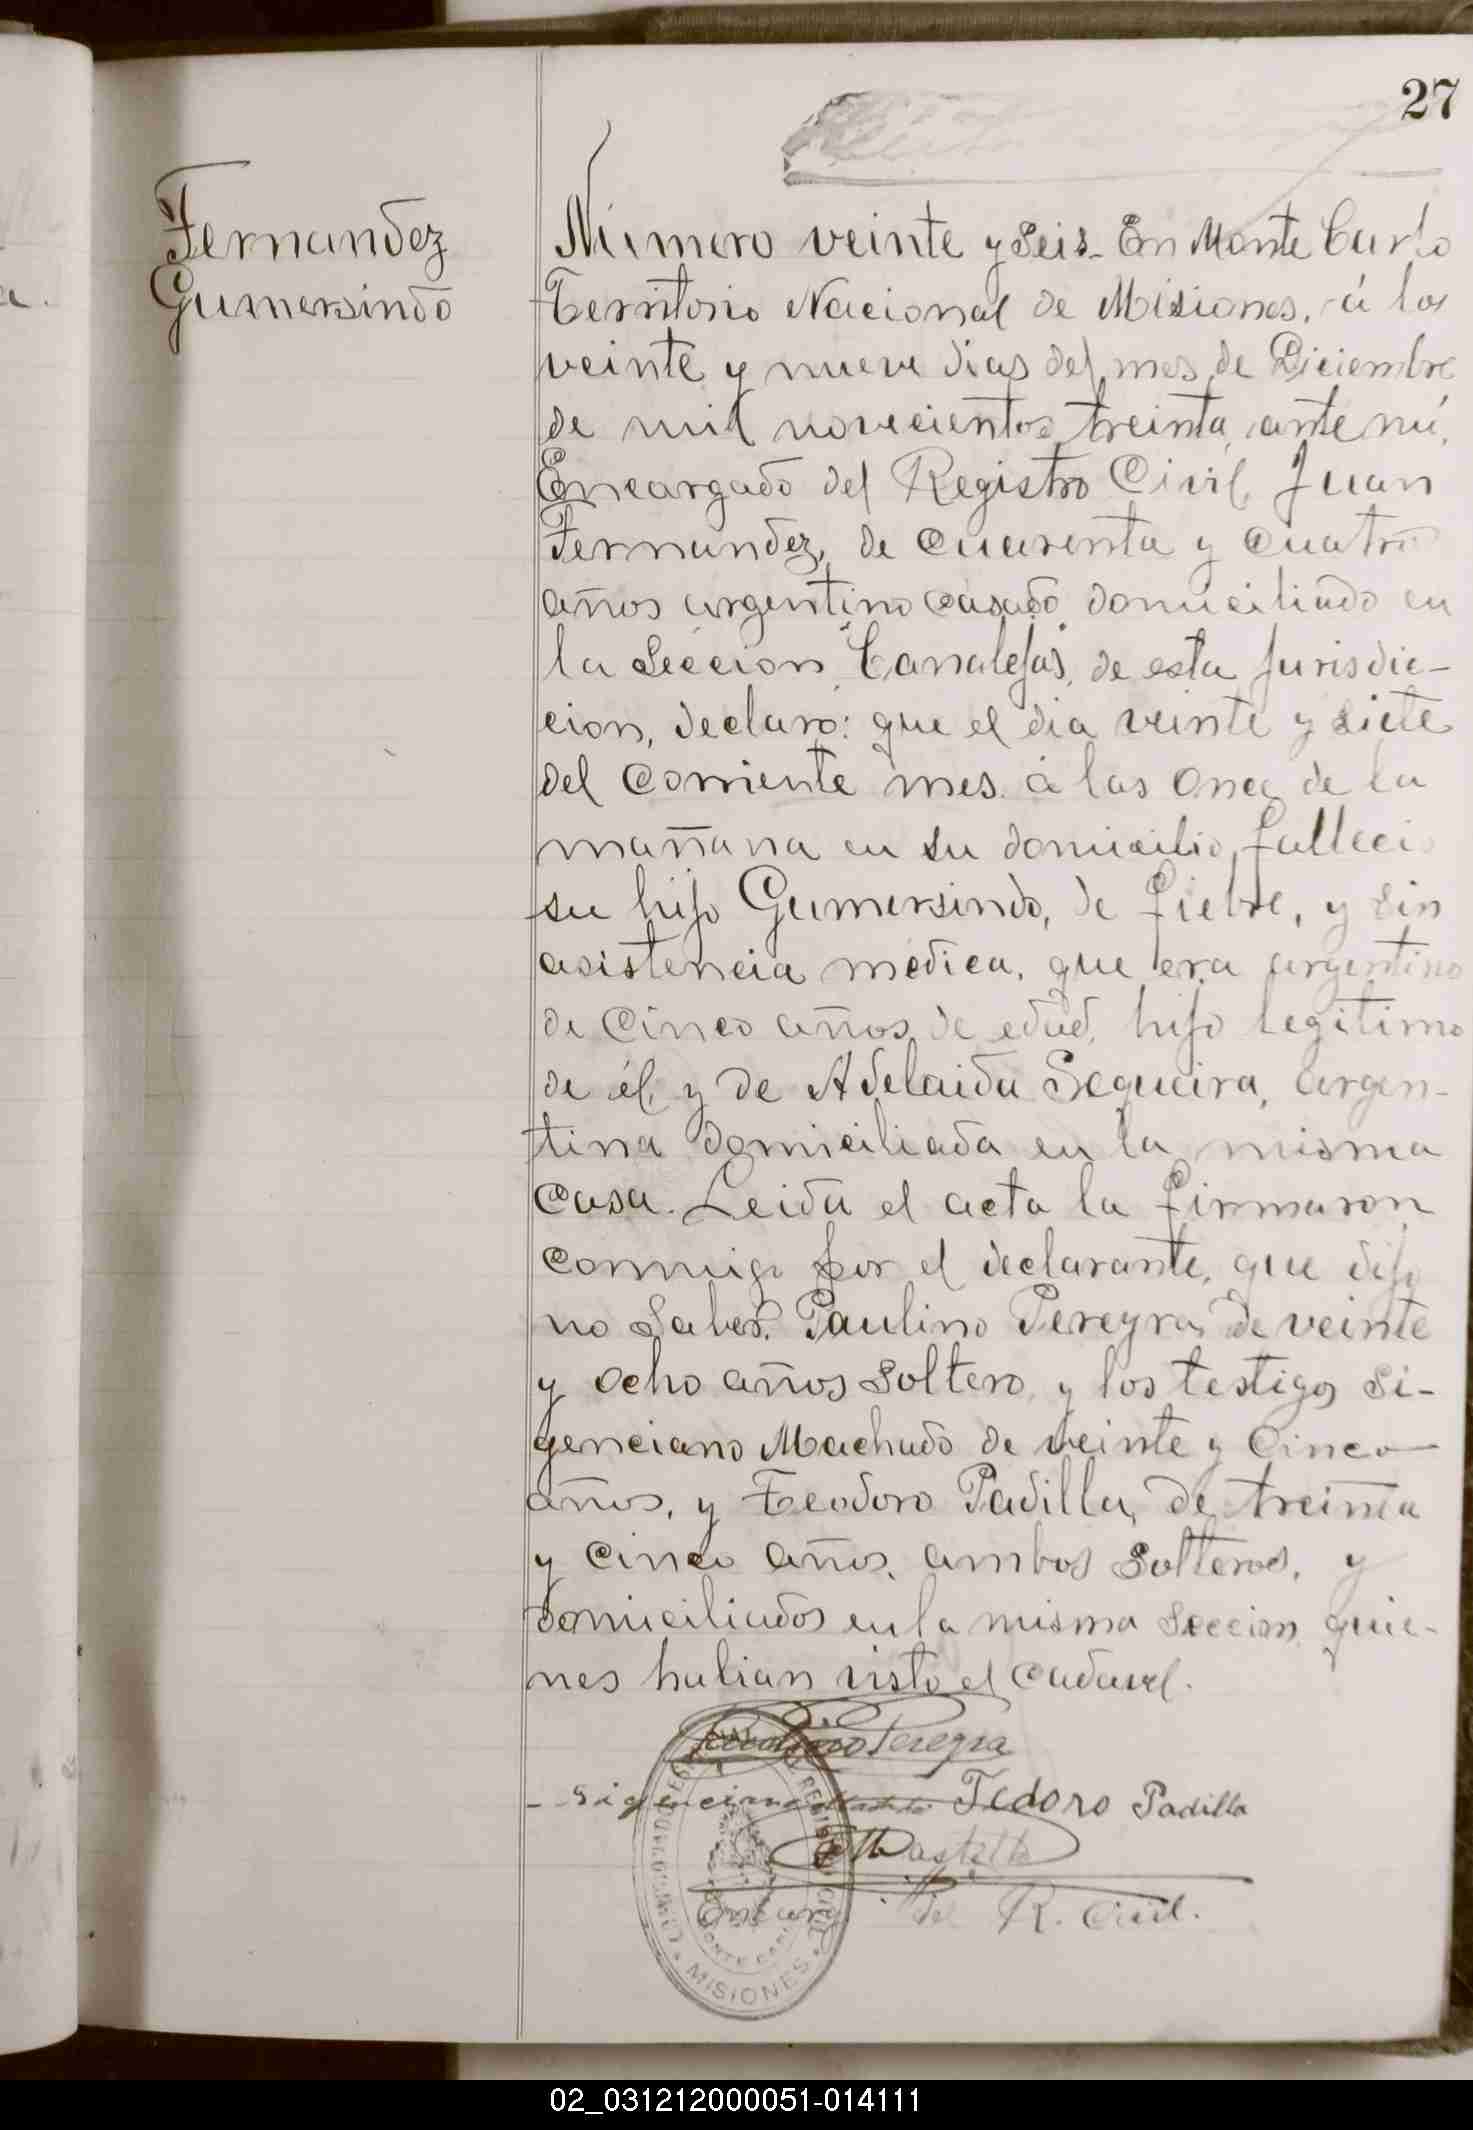 27
Fernandez
Gumersindo
Número veinte y seis_ En Monte Carlo
Territorio Nacional de Misiones, á los
veinte y nueve dias del mes de Diciembre
de mil novecientos treinta, ante mí,
Encargado del Registro Civil, Juan
Fernandez, de cuarenta y cuatro
años argentino casado domiciliado en
la Sección "Canalejas", de esta Jurisdic-
cion, declaro: que el dia veinte y siete
del corriente mes á las once de la
mañana en su domicilio, falleció
su hijo Gumersindo, de fiebre, y sin
asistencia médica, que era argentino
de cinco años de edad, hijo legitimo
de él, y de Adelaida Sequeira, argen-
tina domiciliada en la misma
casa. Leida el acta la firmaron
conmigo por el declarante, que dijo
no saber. Paulino Pereyra, de veinte
y ocho años soltero, y los testigos Si-
genciano Machado de veinte y cinco
años, y Teodoro Padilla, de treinta
y cinco años, ambos solteros, y
domiciliados en la misma seccion, quie-
nes habian visto el cadaver.
Pereyra
Sigenciano Machado Tedoro Padilla
Encar del R. Civil.
REGISTRO CIVIL
MONTE CARLO
MISIONES
02_031212000051-014111